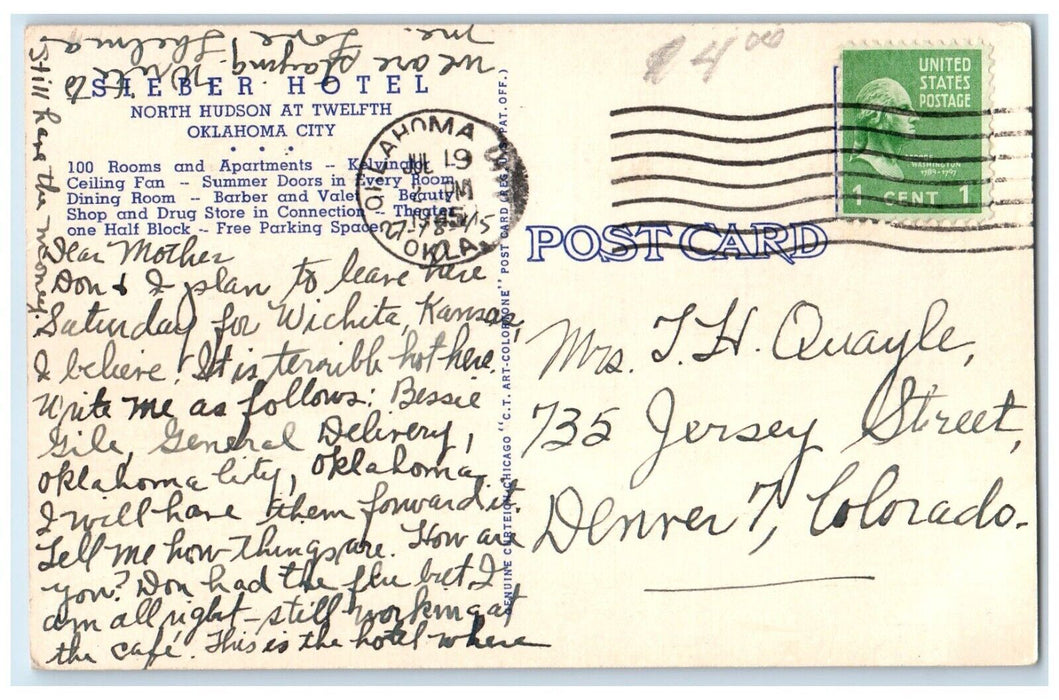 SIEBER HOTEL
NORTH HUDSON AT TWELFTH
OKLAHOMA CITY
100 Rooms and Apartments -- Kelvinator
Ceiling Fan -- Summer Doors in Every Room
Dining Room -- Barber and Valet -- Beauty
Shop and Drug Store in Connection -- Theater
one Half Block -- Free Parking Space
Dear Mother
Don & I plan to leave here
Saturday for Wichita, Kansas,
I believe. It is terribly hot here.
Write me as follows: Bessie
Gile, General Delivery,
Oklahoma City, Oklahoma,
I will have them forward it.
Tell me how things are. How are
you? Don had the flu but I
am all right – still working at
the café. This is the hotel where
we are staying. Write to
me. Love, Thelma
Still have the money.
OKLAHOMA
JUL 19
PM
OKLA.
GENUINE CURTEICH-CHICAGO "C.T. ART-COLORTONE" POST CARD (REG. U.S. PAT. OFF.)
4 00
UNITED
STATES
POSTAGE
GEORGE
WASHINGTON
1789-1797
1 CENT 1
POST CARD
Mrs. T. H. Quayle,
735 Jersey Street,
Denver 7, Colorado.